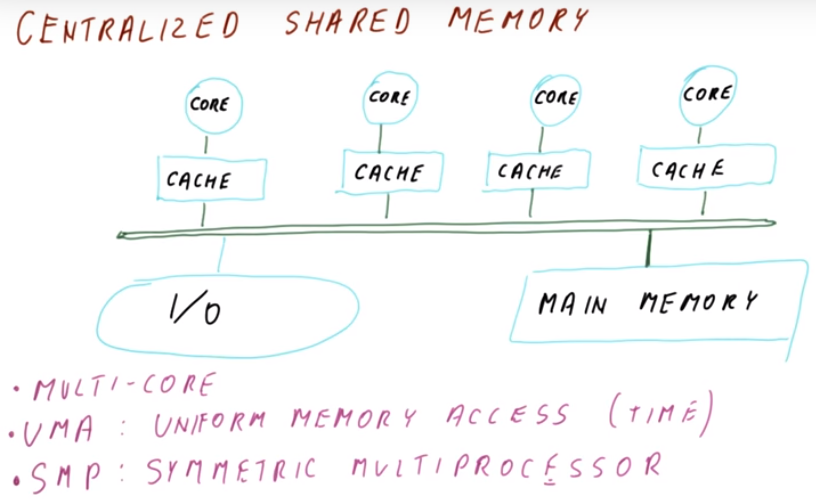 CENTRALIZED SHARED MEMORY
CORE CORE CORE CORE
CACHE CACHE CACHE CACHE
I/O MAIN MEMORY
• MULTI-CORE
• UMA : UNIFORM MEMORY ACCESS (TIME)
• SMP : SYMMETRIC MULTIPROCESSOR